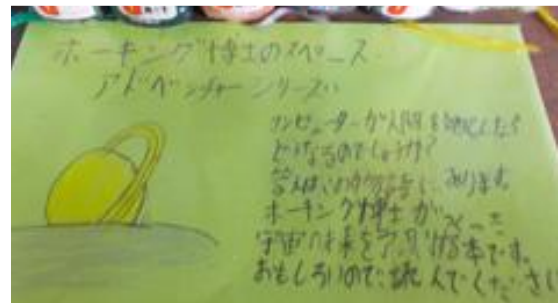 ホーキング博士のスペース
アドベンチャーシリーズ
コンピューターが人間を したら
どうなるのでしょうか?
答えは あります。
ホーキング博士が
宇宙 本です。
おもしろいので読んでください